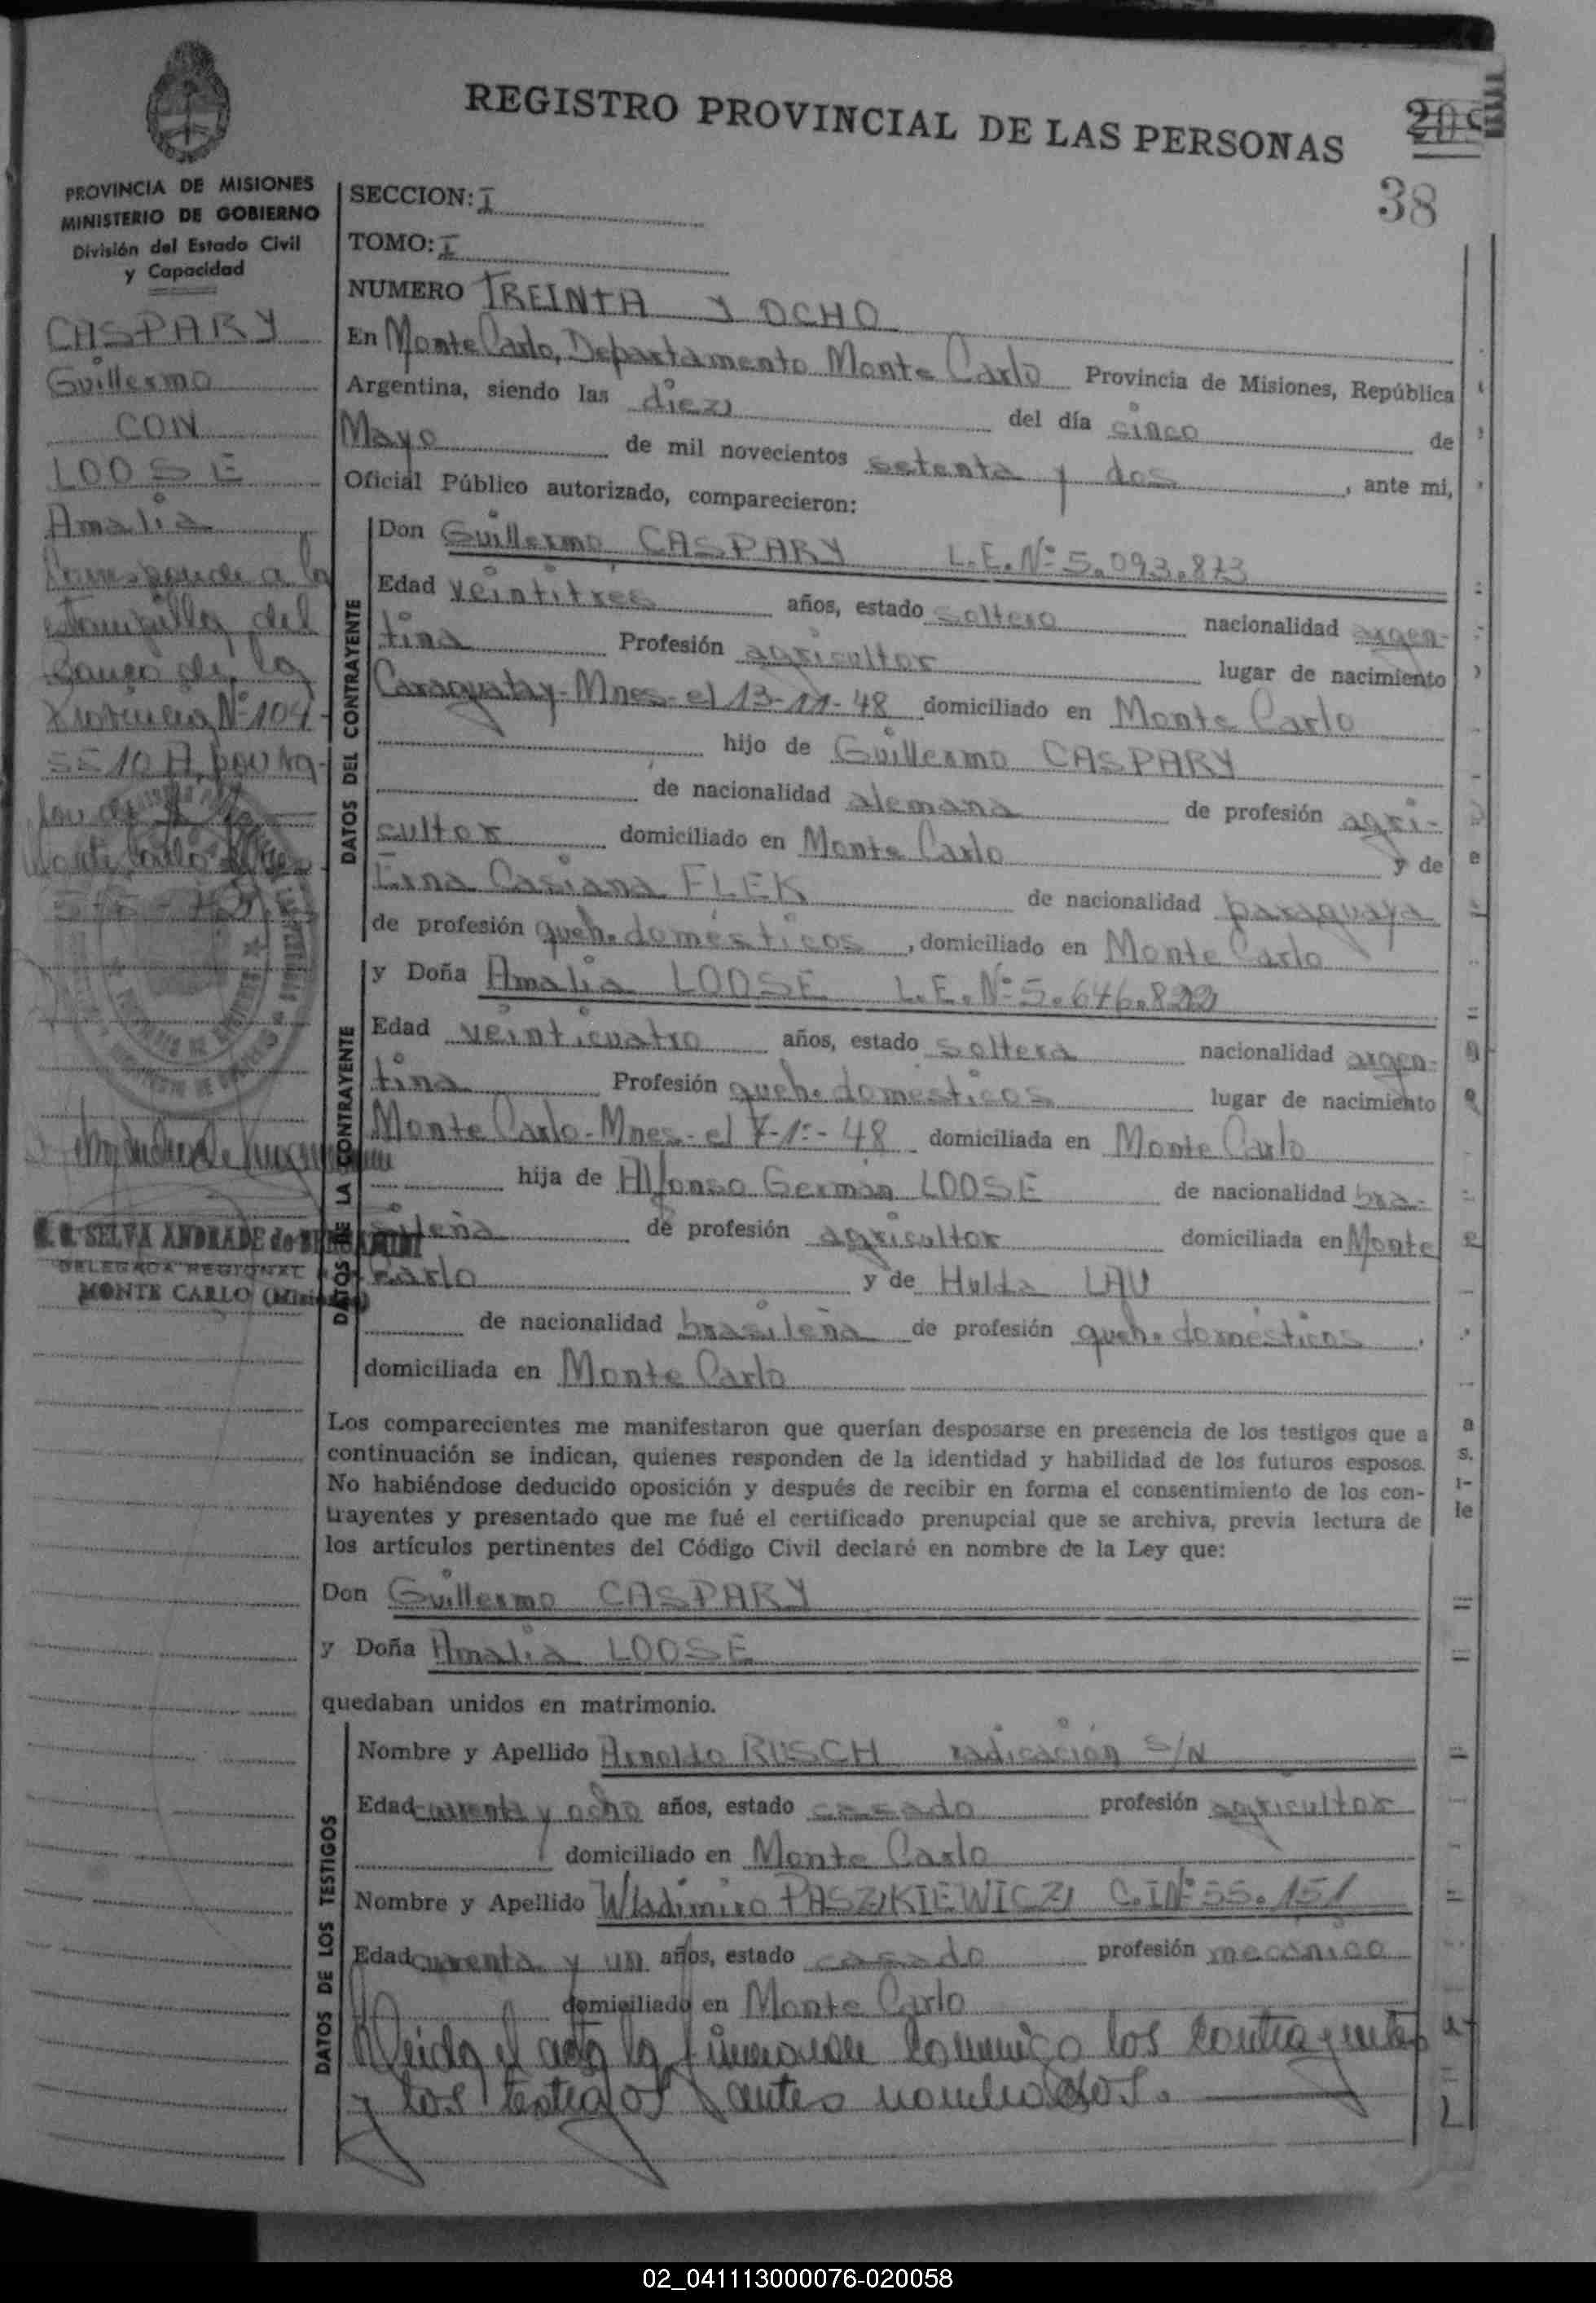 REGISTRO PROVINCIAL DE LAS PERSONAS
209
38
PROVINCIA DE MISIONES
MINISTERIO DE GOBIERNO
División del Estado Civil
y Capacidad
CASPARY
Guillermo
CON
LOOSE
Amalia
Corresponde a la
estampilla del
Banco de la
Provincia Nº 104
SELVA ANDRADE de
DELEGADA REGIONAL
MONTE CARLO
SECCION: I
TOMO: I
NUMERO TREINTA Y OCHO
En Monte Carlo, Departamento Monte Carlo Provincia de Misiones, República
Argentina, siendo las diez del día cinco de
Mayo de mil novecientos setenta y dos, ante mi,
Oficial Público autorizado, comparecieron:
DATOS DEL CONTRAYENTE
Don Guillermo CASPARY L.E. Nº 5.093.873
Edad veintitres años, estado soltero nacionalidad argen-
tina Profesión agricultor lugar de nacimiento
Caraguatay-Mnes- el 13-11-48 domiciliado en Monte Carlo
hijo de Guillermo CASPARY
de nacionalidad alemana de profesión agri-
cultor domiciliado en Monte Carlo y de
Erna Casiana FLEK de nacionalidad paraguaya
de profesión queh. domésticos, domiciliado en Monte Carlo
DATOS DE LA CONTRAYENTE
y Doña Amalia LOOSE L.E. Nº 5.646.822
Edad veinticuatro años, estado soltera nacionalidad argen-
tina Profesión queh. domésticos lugar de nacimiento
Monte Carlo-Mnes- el 7-1º-48 domiciliada en Monte Carlo
hija de Alfonso Germán LOOSE de nacionalidad bra-
sileña de profesión agricultor domiciliada en Monte
Carlo y de Hulda LAU
de nacionalidad brasileña de profesión queh. domésticos,
domiciliada en Monte Carlo
Los comparecientes me manifestaron que querían desposarse en presencia de los testigos que a
continuación se indican, quienes responden de la identidad y habilidad de los futuros esposos.
No habiéndose deducido oposición y después de recibir en forma el consentimiento de los con-
trayentes y presentado que me fué el certificado prenupcial que se archiva, previa lectura de
los artículos pertinentes del Código Civil declaré en nombre de la Ley que:
Don Guillermo CASPARY
y Doña Amalia LOOSE
quedaban unidos en matrimonio.
DATOS DE LOS TESTIGOS
Nombre y Apellido Arnoldo RUSCH radicación S/N
Edad cuarenta y ocho años, estado casado profesión agricultor
domiciliado en Monte Carlo
Nombre y Apellido Wladimiro PASZKIEWICZ C.I Nº 55.151
Edad cuarenta y un años, estado casado profesión mecánico
domiciliado en Monte Carlo
Leida el acta la firmaron conmigo los contrayentes
y los testigos antes nombrados.
02_041113000076-020058